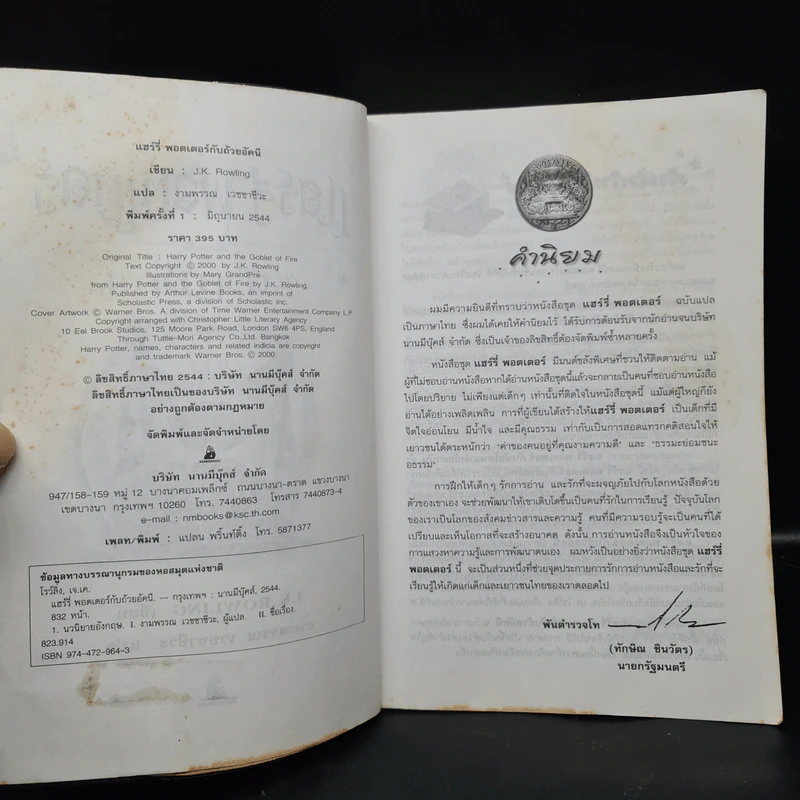 แฮร์รี่ พอตเตอร์กับถ้วยอัคนี
เขียน : J.K. Rowling
แปล : งามพรรณ เวชชาชีวะ
พิมพ์ครั้งที่ 1 : มิถุนายน 2544
ราคา 395 บาท
Original Title : Harry Potter and the Goblet of Fire
Text Copyright © 2000 by J.K. Rowling
Illustrations by Mary GrandPré
from Harry Potter and the Goblet of Fire by J.K. Rowling.
Published by Arthur Levine Books, an imprint of
Scholastic Press, a division of Scholastic Inc.
Cover Artwork © Warner Bros. A division of Time Warner Entertainment Company L.P.
Copyright arranged with Christopher Little Literary Agency
10 Eel Brook Studios, 125 Moore Park Road, London SW6 4PS, England
Through Tuttle-Mori Agency Co.,Ltd. Bangkok
Harry Potter, names, characters and related indicia are copyright
and trademark Warner Bros. © 2000
© ลิขสิทธิ์ภาษาไทย 2544 : บริษัท นานมีบุ๊คส์ จำกัด
ลิขสิทธิ์ภาษาไทยเป็นของบริษัท นานมีบุ๊คส์ จำกัด
อย่างถูกต้องตามกฎหมาย
จัดพิมพ์และจัดจำหน่ายโดย
บริษัท นานมีบุ๊คส์ จำกัด
947/158-159 หมู่ 12 บางนาคอมเพล็กซ์ ถนนบางนา-ตราด แขวงบางนา
เขตบางนา กรุงเทพฯ 10260 โทร. 7440863 โทรสาร 7440873-4
e-mail : nmbooks@ksc.th.com
เพลท/พิมพ์ : แปลน พริ้นท์ติ้ง โทร. 5871377
ข้อมูลทางบรรณานุกรมของหอสมุดแห่งชาติ
โรว์ลิ่ง, เจ.เค.
แฮร์รี่ พอตเตอร์กับถ้วยอัคนี. — กรุงเทพฯ : นานมีบุ๊คส์, 2544.
832 หน้า.
1. นวนิยายอังกฤษ. I. งามพรรณ เวชชาชีวะ, ผู้แปล. II. ชื่อเรื่อง.
823.914
ISBN 974-472-964-3
คำนิยม
ผมมีความยินดีที่ทราบว่าหนังสือชุด แฮร์รี่ พอตเตอร์ ฉบับแปล
เป็นภาษาไทย ซึ่งผมได้เคยให้คำนิยมไว้ ได้รับการต้อนรับจากนักอ่านจนบริษัท
นานมีบุ๊คส์ จำกัด ซึ่งเป็นเจ้าของลิขสิทธิ์ต้องจัดพิมพ์ซ้ำหลายครั้ง
หนังสือชุด แฮร์รี่ พอตเตอร์ มีมนต์ขลังพิเศษที่ชวนให้ติดตามอ่าน แม้
ผู้ที่ไม่ชอบอ่านหนังสือหากได้อ่านหนังสือชุดนี้แล้วจะกลายเป็นคนที่ชอบอ่านหนังสือ
ไปโดยปริยาย ไม่เพียงแต่เด็กๆ เท่านั้นที่ติดใจในหนังสือชุดนี้ แม้แต่ผู้ใหญ่ก็ยัง
อ่านได้อย่างเพลิดเพลิน การที่ผู้เขียนได้สร้างให้แฮร์รี่ พอตเตอร์ เป็นเด็กที่มี
จิตใจอ่อนโยน มีน้ำใจ และมีคุณธรรม เท่ากับเป็นการสอดแทรกคติสอนใจให้
เยาวชนได้ตระหนักว่า "ค่าของคนอยู่ที่คุณงามความดี" และ "ธรรมะย่อมชนะ
อธรรม"
การฝึกให้เด็กๆ รักการอ่าน และรักที่จะผจญภัยไปกับโลกหนังสือด้วย
ตัวของเขาเอง จะช่วยพัฒนาให้เขาเติบโตขึ้นเป็นคนที่รักในการเรียนรู้ ปัจจุบันโลก
ของเราเป็นโลกของสังคมข่าวสารและความรู้ คนที่มีความรอบรู้จะเป็นคนที่ได้
เปรียบและเห็นโอกาสที่จะสร้างอนาคต ดังนั้น การอ่านหนังสือจึงเป็นหัวใจของ
การแสวงหาความรู้และการพัฒนาตนเอง ผมหวังเป็นอย่างยิ่งว่าหนังสือชุด แฮร์รี่
พอตเตอร์ นี้ จะเป็นส่วนหนึ่งที่ช่วยจุดประกายการรักการอ่านหนังสือและรักที่จะ
เรียนรู้ให้เกิดแก่เด็กและเยาวชนไทยของเราตลอดไป
พันตำรวจโท
(ทักษิณ ชินวัตร)
นายกรัฐมนตรี